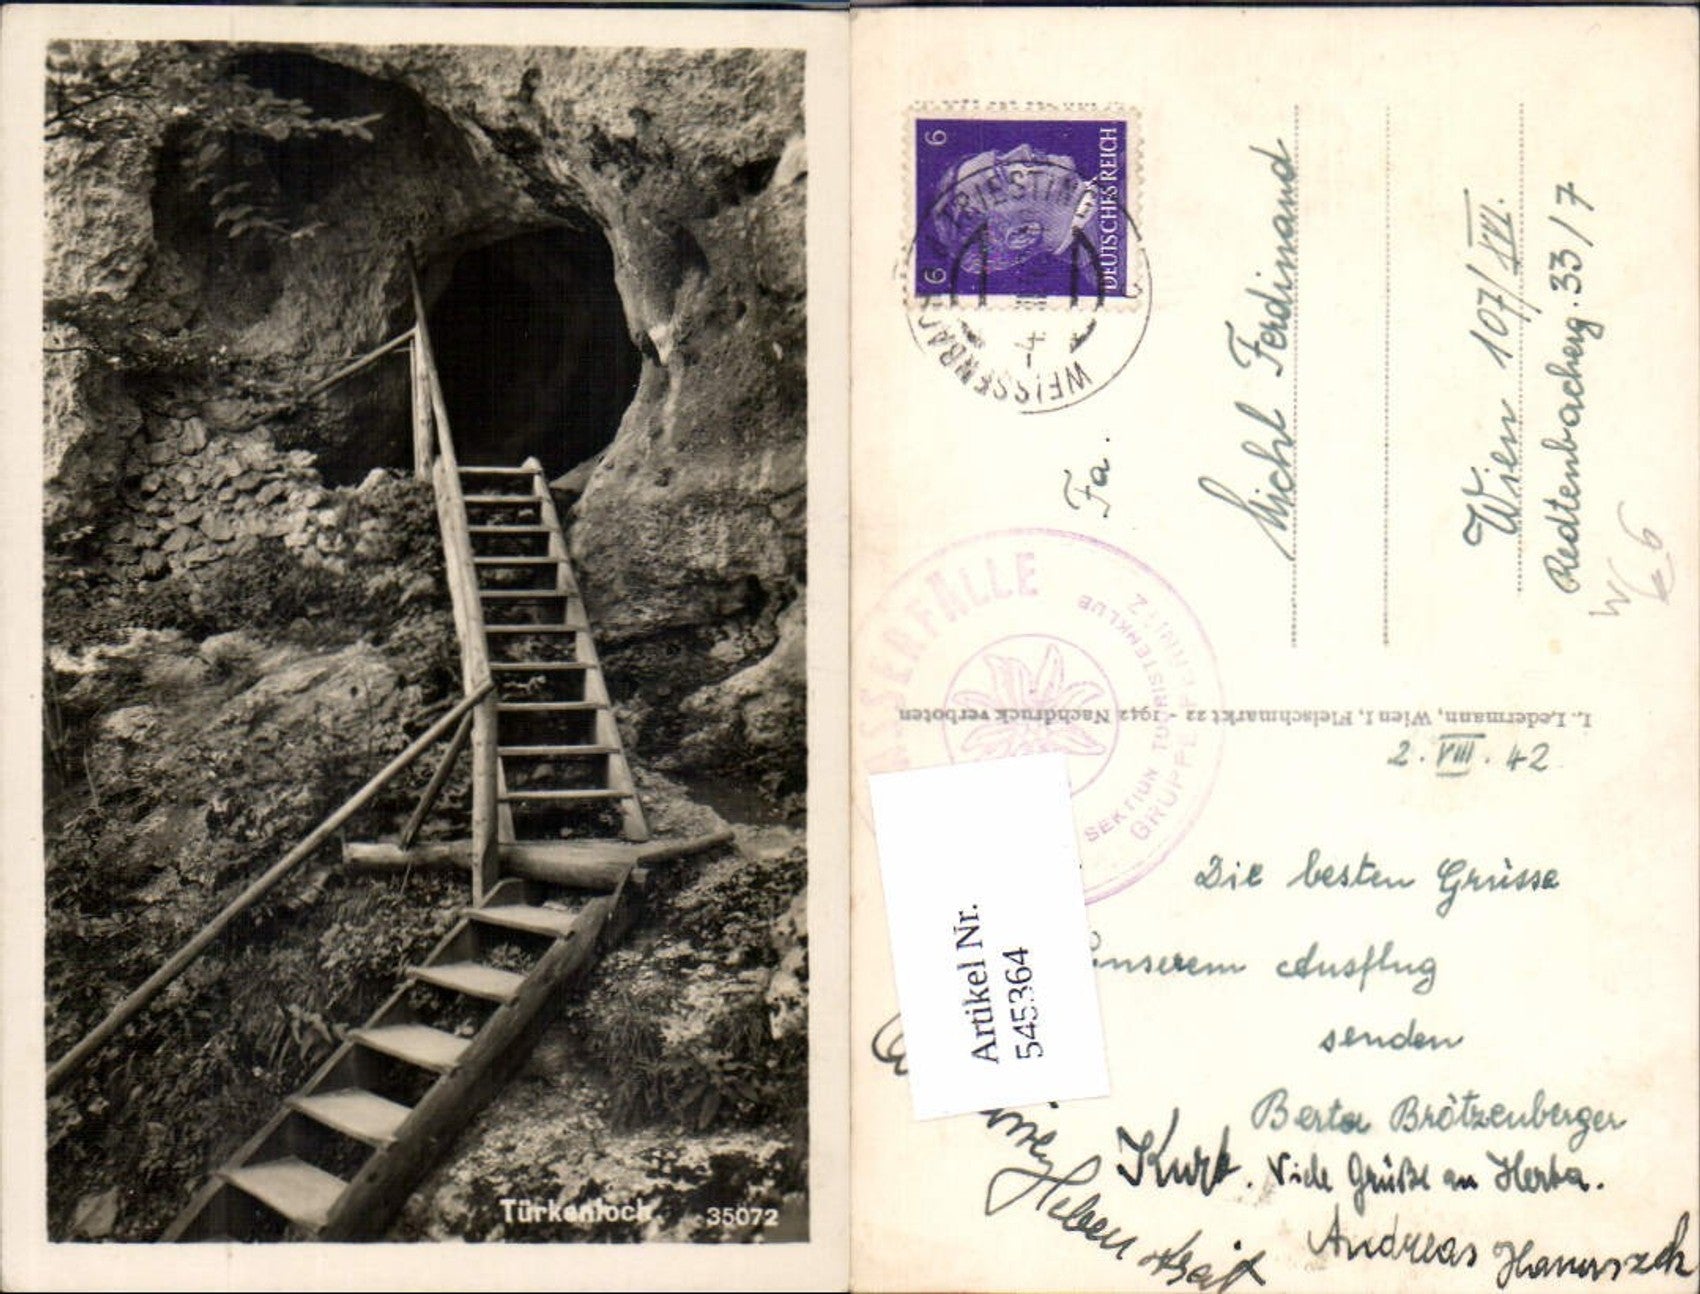 Türkenloch
35072
6 6
DEUTSCHES REICH
TRIESTING
WEISSENBACH
-4
Fa.
Ferdinand
Wien 107/XVI.
Redtenbacherg. 33/7
W
66
SSERFÄLLE
SEKTION TURISTENKLUB
GRUPPE
L. Ledermann, Wien I, Fleischmarkt 22 - 1942 Nachdruck verboten
2. VIII. 42
Artikel Nr.
545364
Die besten Grüsse
unserem Ausflug
senden
Berta Brötzenberger
Kurt. Viele Grüße an Herta.
Andreas